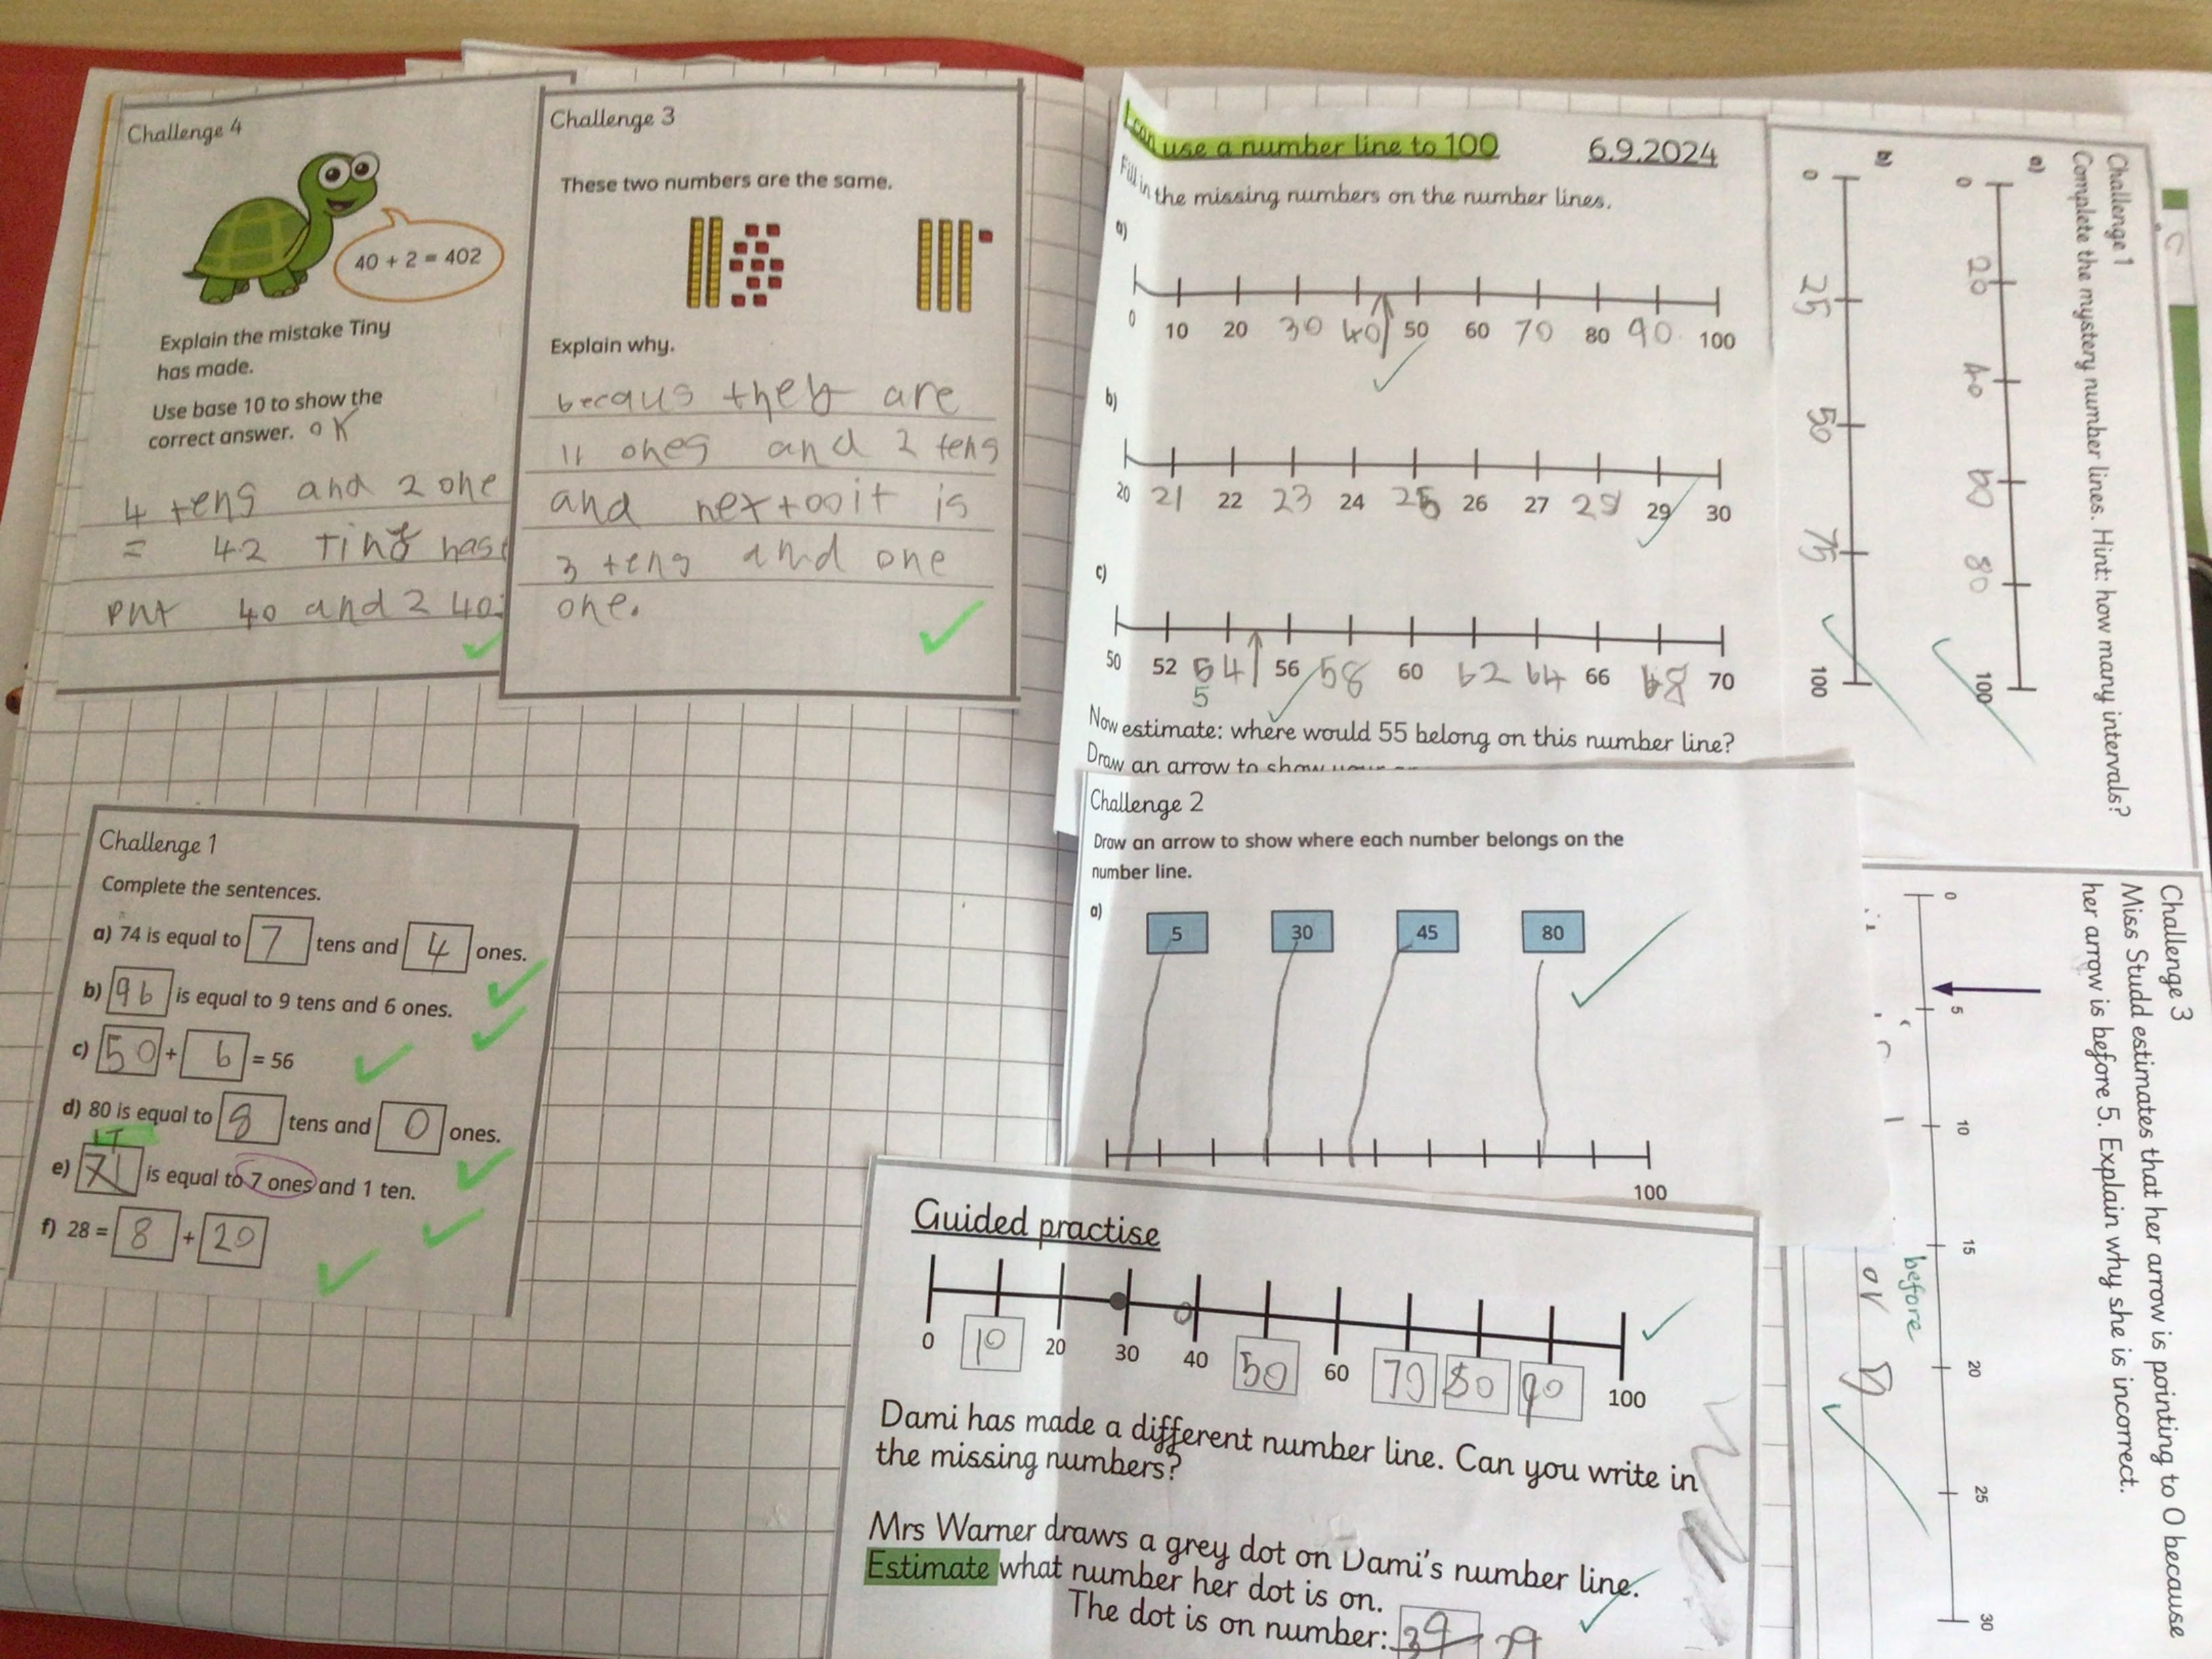 Challenge 4
40 + 2 = 402
Explain the mistake Tiny
has made.
Use base 10 to show the
correct answer. OK
4 tens and 2 one
= 42 Tiny has
put 40 and 2 40
Challenge 3
These two numbers are the same.
Explain why.
becaus they are
11 ones and 2 tens
and next oo it is
3 tens and one
one.
Challenge 1
Complete the sentences.
a) 74 is equal to 7 tens and 4 ones.
b) 96 is equal to 9 tens and 6 ones.
c) 50 + 6 = 56
d) 80 is equal to 8 tens and 0 ones.
17
e) 71 is equal to 7 ones and 1 ten.
f) 28 = 8 + 20
I can use a number line to 100 6.9.2024
Fill in the missing numbers on the number lines.
a)
0 10 20 30 40 50 60 70 80 90 100
b)
20 21 22 23 24 25 26 27 28 29 30
c)
50 52 54 56 58 60 62 64 66 68 70
5
Now estimate: where would 55 belong on this number line?
Draw an arrow to show your
Challenge 2
Draw an arrow to show where each number belongs on the
number line.
a)
5 30 45 80
100
Guided practise
0 10 20 30 40 50 60 70 80 90 100
Dami has made a different number line. Can you write in
the missing numbers?
Mrs Warner draws a grey dot on Dami's number line.
Estimate what number her dot is on.
The dot is on number: 39 29
Challenge 1
Complete the mystery number lines. Hint: how many intervals?
a)
0 20 40 60 80 100
b)
0 25 50 75 100
Challenge 3
Miss Studd estimates that her arrow is pointing to 0 because
her arrow is before 5. Explain why she is incorrect.
0 5 10 15 20 25 30
before
or